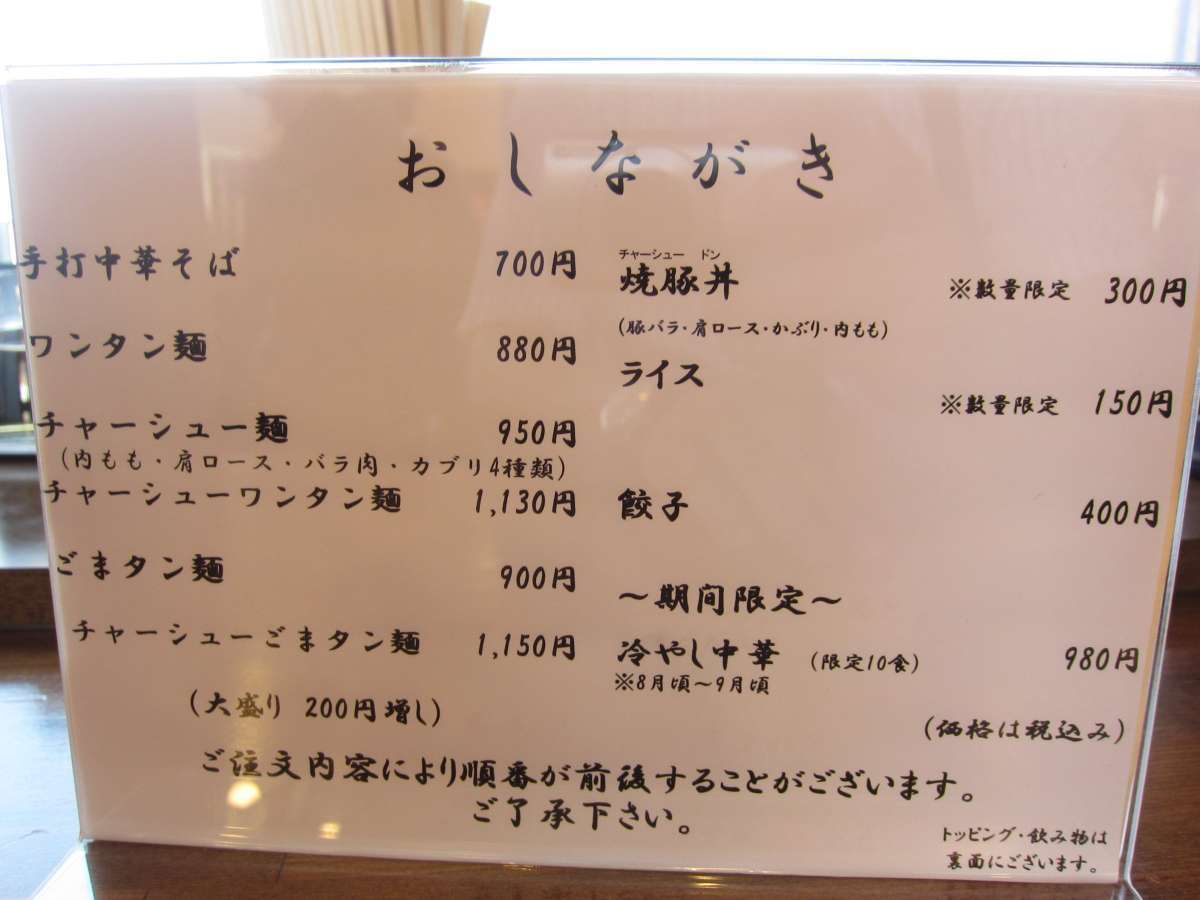 おしながき
手打中華そば 700円
ワンタン麺 880円
チャーシュー麺 950円
(内もも・肩ロース・バラ肉・カブリ4種類)
チャーシューワンタン麺 1,130円
ごまタン麺 900円
チャーシューごまタン麺 1,150円
(大盛り 200円増し)
チャーシュー ドン
焼豚丼 ※数量限定 300円
(豚バラ・肩ロース・かぶり・内もも)
ライス
※数量限定 150円
餃子 400円
～期間限定～
冷やし中華 (限定10食) 980円
※8月頃～9月頃
(価格は税込み)
ご注文内容により順番が前後することがございます。
ご了承下さい。
トッピング・飲み物は
裏面にございます。